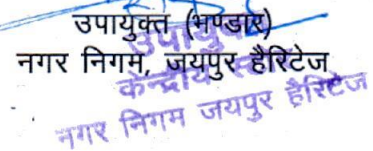 उपायुक्त (भण्डार)
नगर निगम, जयपुर हैरिटेज
उपायुक्त
केन्द्रीय
नगर निगम जयपुर हैरिटेज